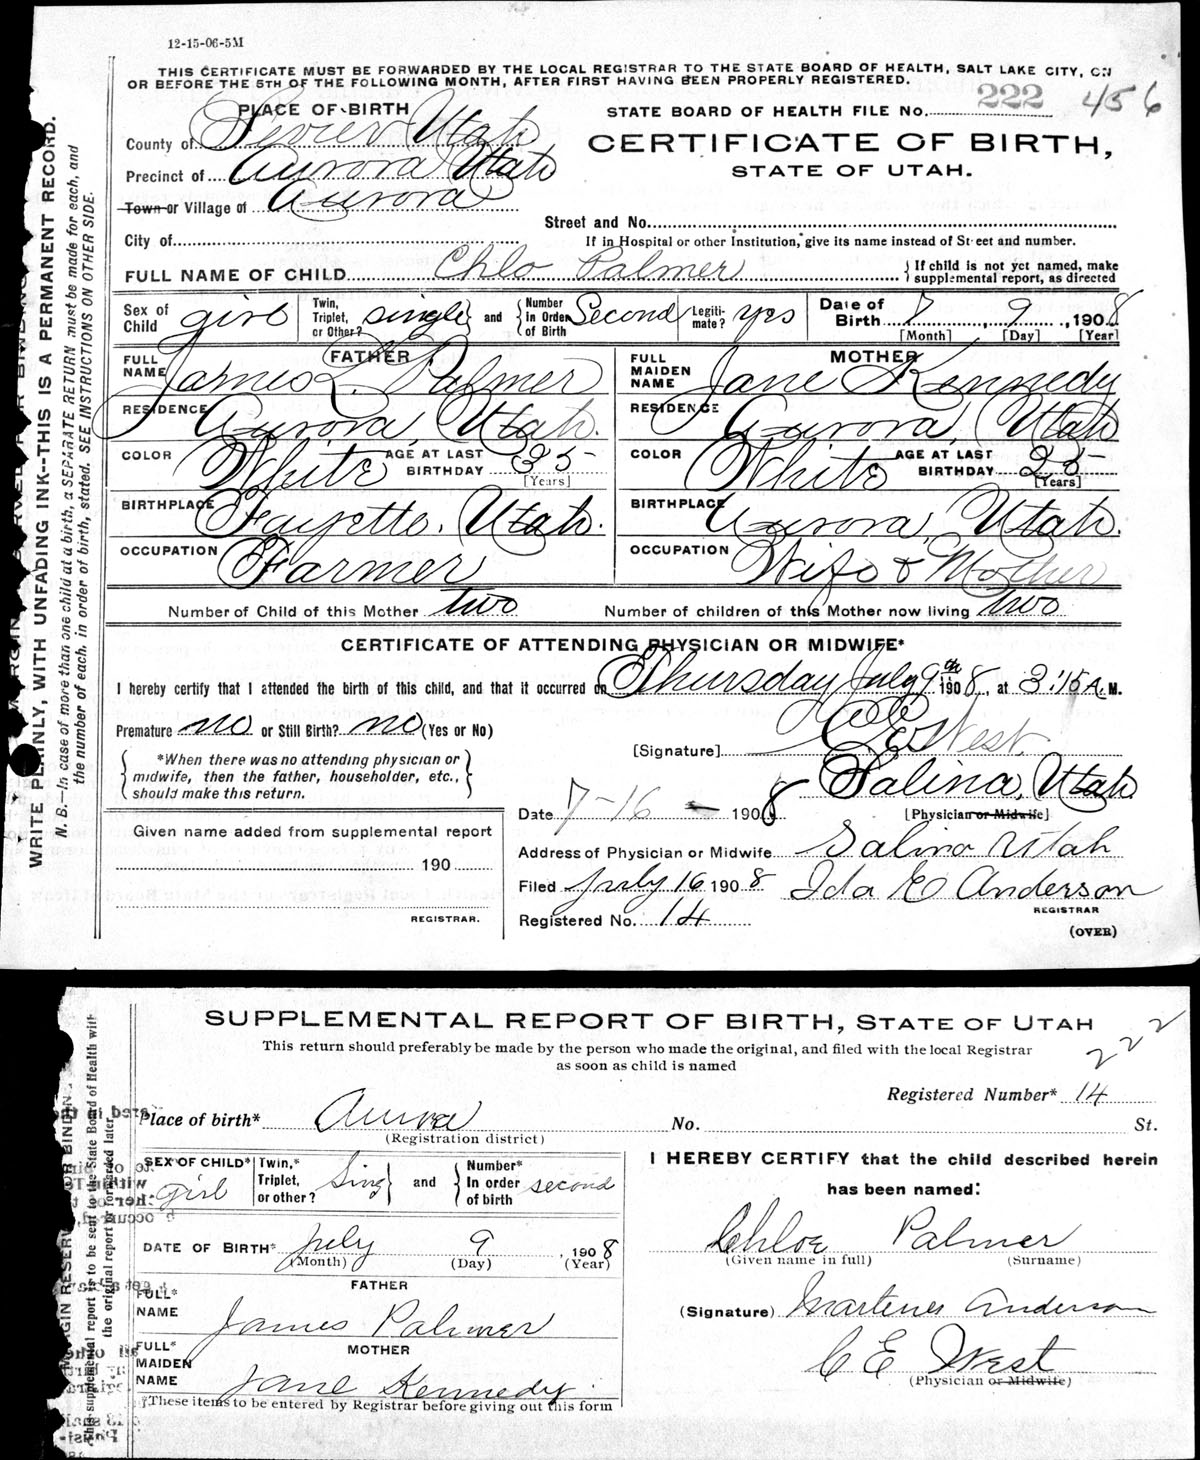 12-15-06-5M
THIS CERTIFICATE MUST BE FORWARDED BY THE LOCAL REGISTRAR TO THE STATE BOARD OF HEALTH, SALT LAKE CITY, ON
OR BEFORE THE 5TH OF THE FOLLOWING MONTH, AFTER FIRST HAVING BEEN PROPERLY REGISTERED.
222 456
PLACE OF BIRTH
STATE BOARD OF HEALTH FILE No.
County of Sevier Utah
CERTIFICATE OF BIRTH,
Precinct of Aurora Utah
STATE OF UTAH.
Town or Village of Aurora
Street and No.
City of
If in Hospital or other Institution, give its name instead of Street and number.
FULL NAME OF CHILD Chlo Palmer
If child is not yet named, make
supplemental report, as directed
Sex of Child girl
Twin, Triplet, or Other? single and Number in Order of Birth Second
Legitimate? yes
Date of Birth 7 9, 1908
[Month] [Day] [Year]
FATHER
FULL NAME James L. Palmer
RESIDENCE Aurora, Utah.
COLOR White AGE AT LAST BIRTHDAY 35
[Years]
BIRTHPLACE Fayette. Utah.
OCCUPATION Farmer
MOTHER
FULL MAIDEN NAME Jane Kennedy
RESIDENCE Aurora, Utah
COLOR White AGE AT LAST BIRTHDAY 25
[Years]
BIRTHPLACE Aurora, Utah.
OCCUPATION Wife & Mother
Number of Child of this Mother two Number of children of this Mother now living two
CERTIFICATE OF ATTENDING PHYSICIAN OR MIDWIFE*
I hereby certify that I attended the birth of this child, and that it occurred on Thursday July 9th 1908, at 3:15 A. M.
Premature no or Still Birth? no (Yes or No)
[Signature] C E West
*When there was no attending physician or
midwife, then the father, householder, etc.,
should make this return.
Salina, Utah
Date 7-16 1908
[Physician or Midwife]
Given name added from supplemental report
190
REGISTRAR.
Address of Physician or Midwife Salina Utah
Filed July 16 1908 Ida E Anderson
REGISTRAR
Registered No. 14
(OVER)
WRITE PLAINLY, WITH UNFADING INK--THIS IS A PERMANENT RECORD.
N. B.—In case of more than one child at a birth, a SEPARATE RETURN must be made for each, and
the number of each, in order of birth, stated. SEE INSTRUCTIONS ON OTHER SIDE.
SUPPLEMENTAL REPORT OF BIRTH, STATE OF UTAH
This return should preferably be made by the person who made the original, and filed with the local Registrar
as soon as child is named
222
Registered Number* 14
Place of birth* Aurora No. St.
(Registration district)
SEX OF CHILD* girl
Twin,* Triplet, or other? Sing and Number* In order of birth second
DATE OF BIRTH* July 9, 1908
(Month) (Day) (Year)
FATHER
FULL* NAME James Palmer
MOTHER
FULL* MAIDEN NAME Jane Kennedy
*These items to be entered by Registrar before giving out this form
I HEREBY CERTIFY that the child described herein
has been named:
Chloe Palmer
(Given name in full) (Surname)
(Signature) Anderson
C E West
(Physician or Midwife)
This supplemental report is to be sent to the State Board of Health with
the original report if forwarded later